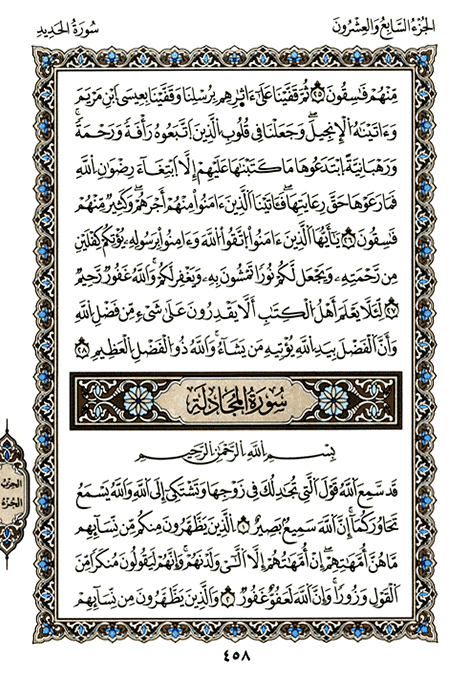 الجزء السابع والعشرون
سورة الحديد
مِّنْهُمْ فَٰسِقُونَ ٢٥ ثُمَّ قَفَّيْنَا عَلَىٰٓ ءَاثَٰرِهِم بِرُسُلِنَا وَقَفَّيْنَا بِعِيسَى ٱبْنِ مَرْيَمَ
وَءَاتَيْنَٰهُ ٱلْإِنجِيلَۖ وَجَعَلْنَا فِى قُلُوبِ ٱلَّذِينَ ٱتَّبَعُوهُ رَأْفَةً وَرَحْمَةًۚ
وَرَهْبَانِيَّةً ٱبْتَدَعُوهَا مَا كَتَبْنَٰهَا عَلَيْهِمْ إِلَّا ٱبْتِغَآءَ رِضْوَٰنِ ٱللَّهِ
فَمَا رَعَوْهَا حَقَّ رِعَايَتِهَاۖ فَـَٔاتَيْنَا ٱلَّذِينَ ءَامَنُوا۟ مِنْهُمْ أَجْرَهُمْۖ وَكَثِيرٌ مِّنْهُمْ
فَٰسِقُونَ ٢٦ يَٰٓأَيُّهَا ٱلَّذِينَ ءَامَنُوا۟ ٱتَّقُوا۟ ٱللَّهَ وَءَامِنُوا۟ بِرَسُولِهِۦ يُؤْتِكُمْ كِفْلَيْنِ
مِن رَّحْمَتِهِۦ وَيَجْعَل لَّكُمْ نُورًا تَمْشُونَ بِهِۦ وَيَغْفِرْ لَكُمْۚ وَٱللَّهُ غَفُورٌ رَّحِيمٌ
٢٧ لِّئَلَّا يَعْلَمَ أَهْلُ ٱلْكِتَٰبِ أَلَّا يَقْدِرُونَ عَلَىٰ شَىْءٍ مِّن فَضْلِ ٱللَّهِ
وَأَنَّ ٱلْفَضْلَ بِيَدِ ٱللَّهِ يُؤْتِيهِ مَن يَشَآءُۚ وَٱللَّهُ ذُو ٱلْفَضْلِ ٱلْعَظِيمِ ٢٨
سورة المجادلة
بِسْمِ ٱللَّهِ ٱلرَّحْمَٰنِ ٱلرَّحِيمِ
قَدْ سَمِعَ ٱللَّهُ قَوْلَ ٱلَّتِى تُجَٰدِلُكَ فِى زَوْجِهَا وَتَشْتَكِىٓ إِلَى ٱللَّهِ وَٱللَّهُ يَسْمَعُ
تَحَاوُرَكُمَآۚ إِنَّ ٱللَّهَ سَمِيعٌۢ بَصِيرٌ ١ ٱلَّذِينَ يَظَّهَّرُونَ مِنكُم مِّن نِّسَآئِهِم
مَّا هُنَّ أُمَّهَٰتِهِمْۖ إِنْ أُمَّهَٰتُهُمْ إِلَّا ٱلَّٰٓـِٔى وَلَدْنَهُمْۚ وَإِنَّهُمْ لَيَقُولُونَ مُنكَرًا مِّنَ
ٱلْقَوْلِ وَزُورًاۚ وَإِنَّ ٱللَّهَ لَعَفُوٌّ غَفُورٌ ٢ وَٱلَّذِينَ يَظَّهَّرُونَ مِن نِّسَآئِهِمْ
الحزب
الجزء
٤٥٨